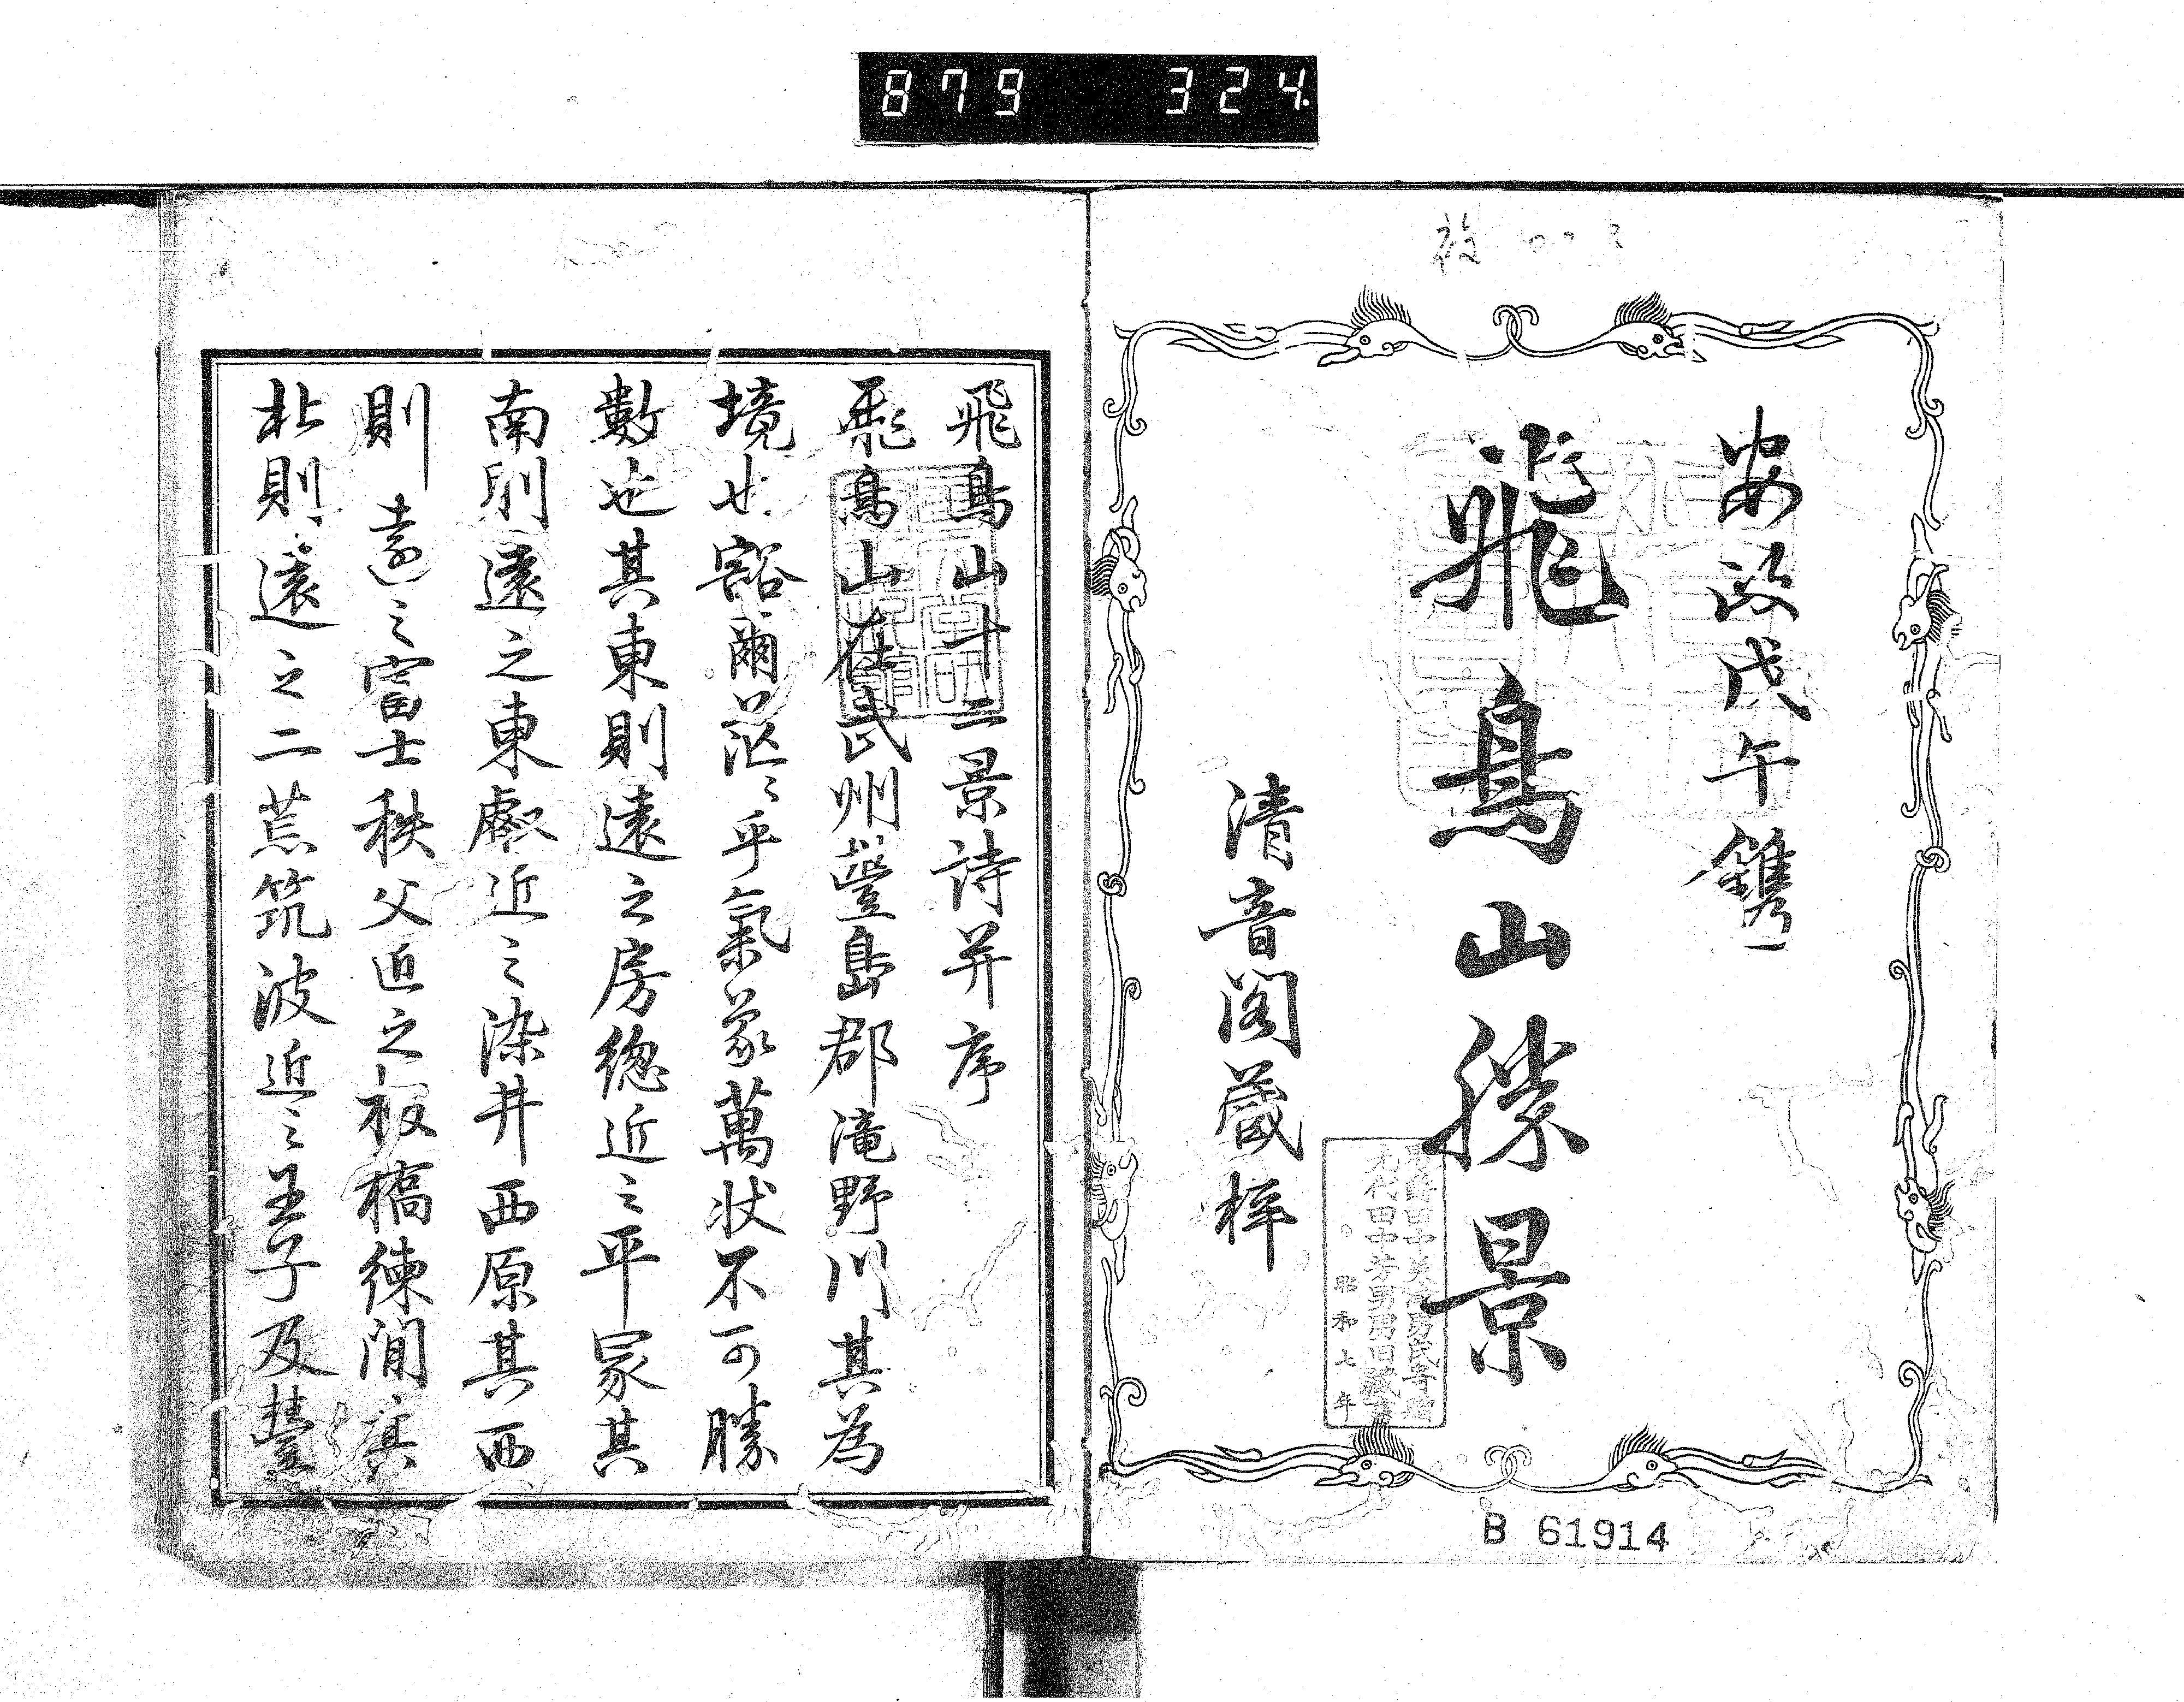 879 324
安政戊午鐫
飛鳥山勝景
清音閣蔵梓
昭和七年
B 61914
飛鳥山十二景詩并序
飛鳥山在武州豐島郡滝野川其為
境也豁爾茫〻乎氣象萬状不可勝
數也其東則遠之房総近〻平冢其
南則遠之東叡近〻染井西原其西
則遠〻富士秩父近之板橋練間其
北則遠之二荒筑波近〻王子及豐